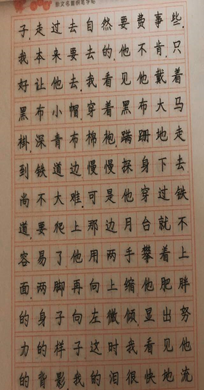 子,走过去自然要费事些.
我本来要去的,他不肯,只
好让他去.我看见他戴着
黑布小帽,穿着黑布大马
褂,深青布棉袍,蹒跚地走
到铁道边,慢慢探身下去
尚不大难.可是他穿过铁
道,要爬上那边月台,就不
容易了.他用两手攀着上
面,两脚再向上缩,他肥胖
的身子向左微倾,显出努
力的样子.这时我看见他
的背影,我的泪很快地流